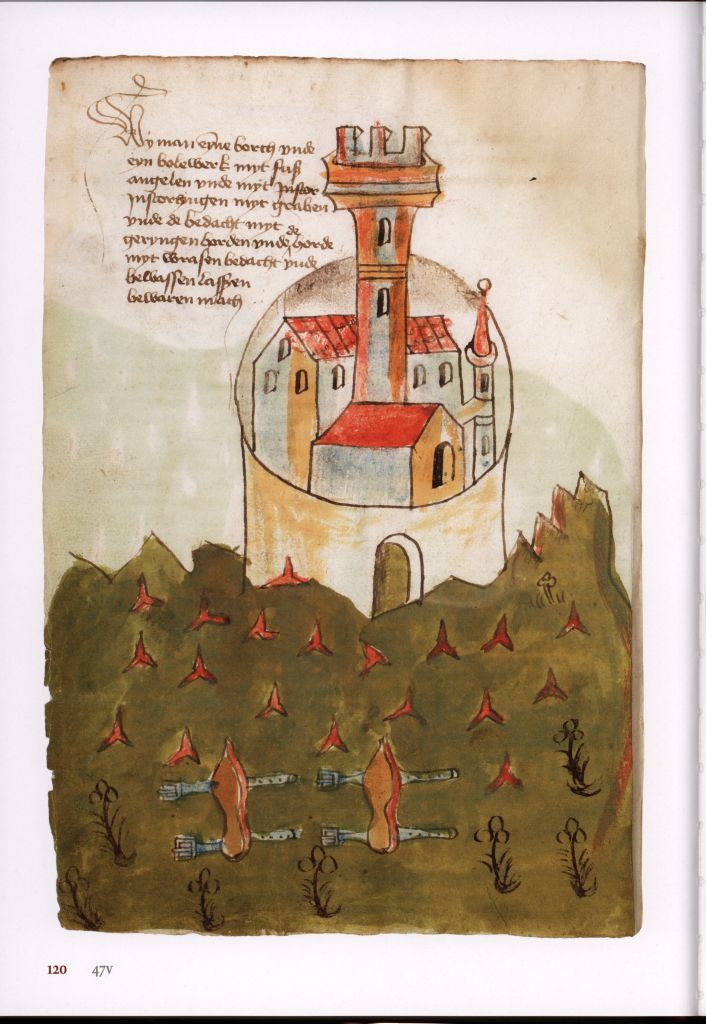 Wy man eyne borch vnde
eyn bolewerk myt fuß
angelen vnde myt
myt graben
vnde de bedacht myt
geryngen horden vnde de horde
myt wrasen bedacht vnde
bewassen lassen
bewaren mach
120 47v